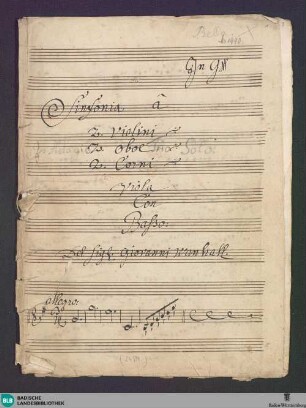 Sinfonia à
2. Violini
2. Oboe
2. Corni
Viola
Con
Basso.
Del Sigr. Giovanni Wanhall.
Allegro.
BLB BADISCHE
LANDESBIBLIOTHEK
Baden-Württemberg